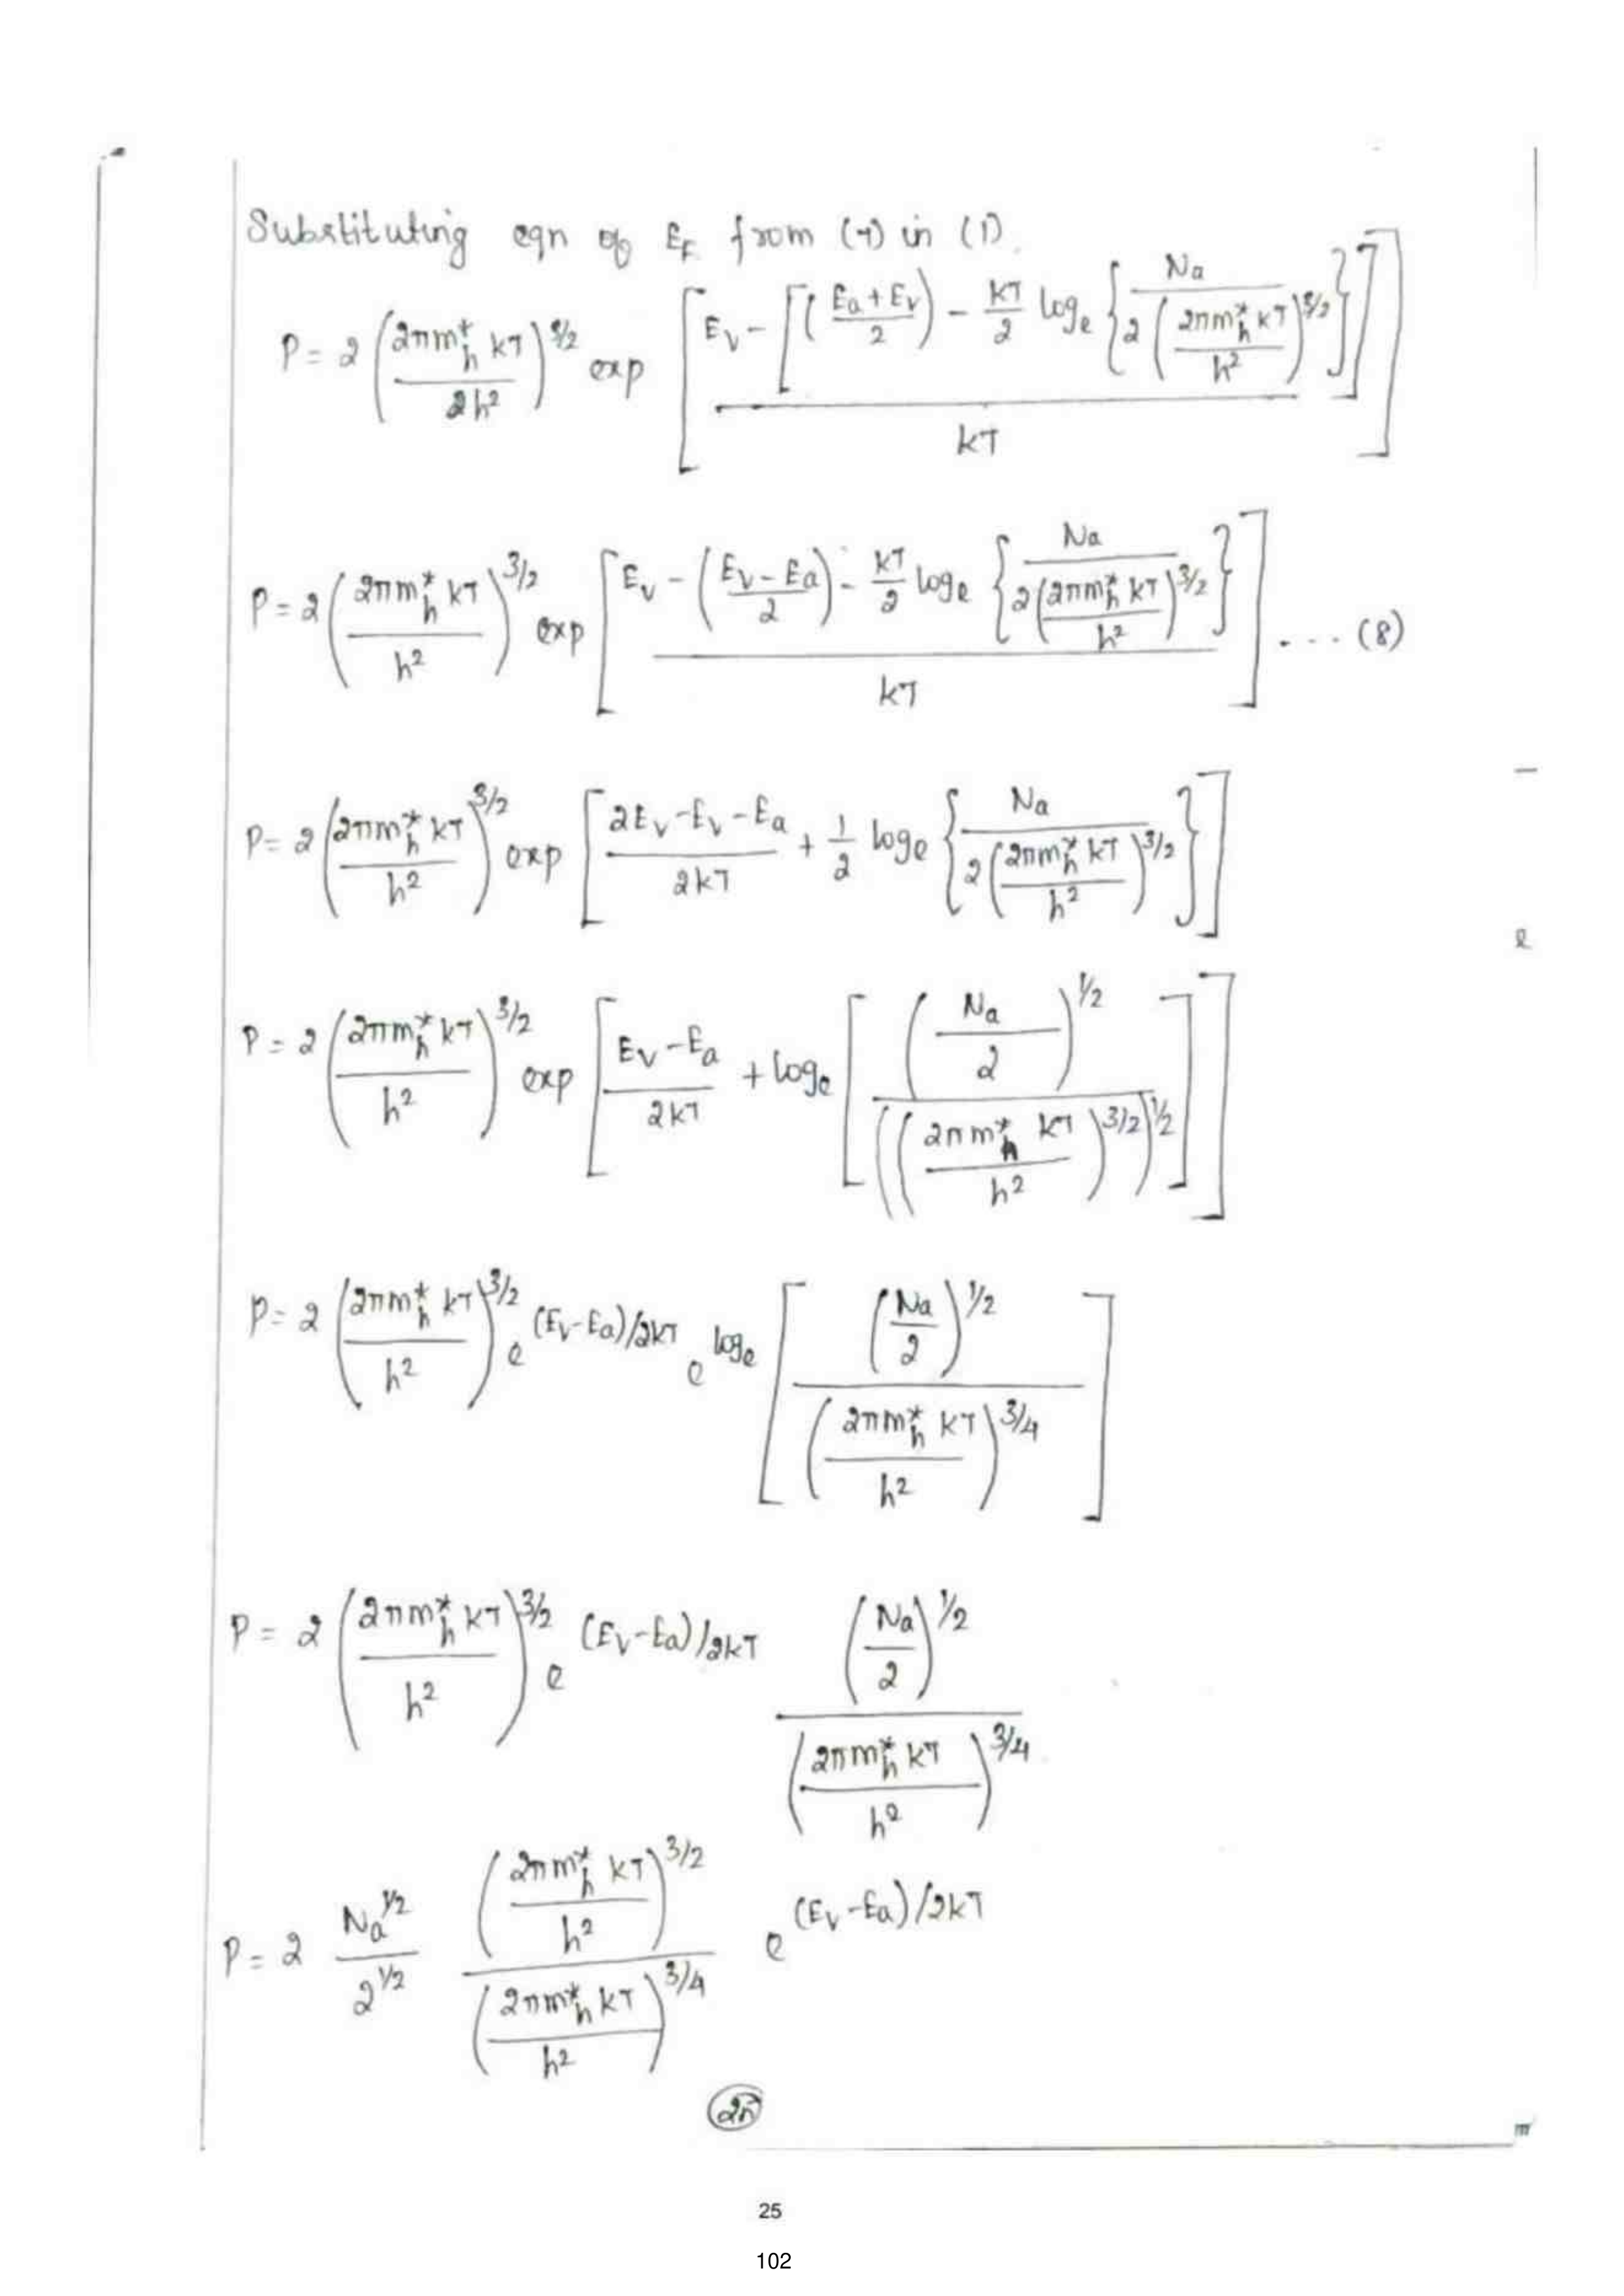 Substituting eqn of E_F from (7) in (1).
P = 2 (2πm*_h kT / 2h²)^3/2 exp [ E_v - [ ( (E_a + E_v) / 2 ) - kT/2 log_e { N_a / 2 (2πm*_h kT / h²)^3/2 } ] / kT ]
P = 2 (2πm*_h kT / h²)^3/2 exp [ E_v - ( (E_v - E_a) / 2 ) - kT/2 log_e { N_a / 2 (2πm*_h kT / h²)^3/2 } / kT ] . . . . (8)
P = 2 (2πm*_h kT / h²)^3/2 exp [ (2E_v - E_v - E_a) / 2kT + 1/2 log_e { N_a / 2 (2πm*_h kT / h²)^3/2 } ]
P = 2 (2πm*_h kT / h²)^3/2 exp [ (E_v - E_a) / 2kT + log_e [ (N_a / 2)^1/2 / ((2πm*_h kT / h²)^3/2)^1/2 ] ]
P = 2 (2πm*_h kT / h²)^3/2 e^(E_v - E_a)/2kT e^log_e [ (N_a / 2)^1/2 / (2πm*_h kT / h²)^3/4 ]
P = 2 (2πm*_h kT / h²)^3/2 e^(E_v - E_a)/2kT (N_a / 2)^1/2 / (2πm*_h kT / h²)^3/4
P = 2 N_a^1/2 / 2^1/2 (2πm*_h kT / h²)^3/2 / (2πm*_h kT / h²)^3/4 e^(E_v - E_a)/2kT
25
102